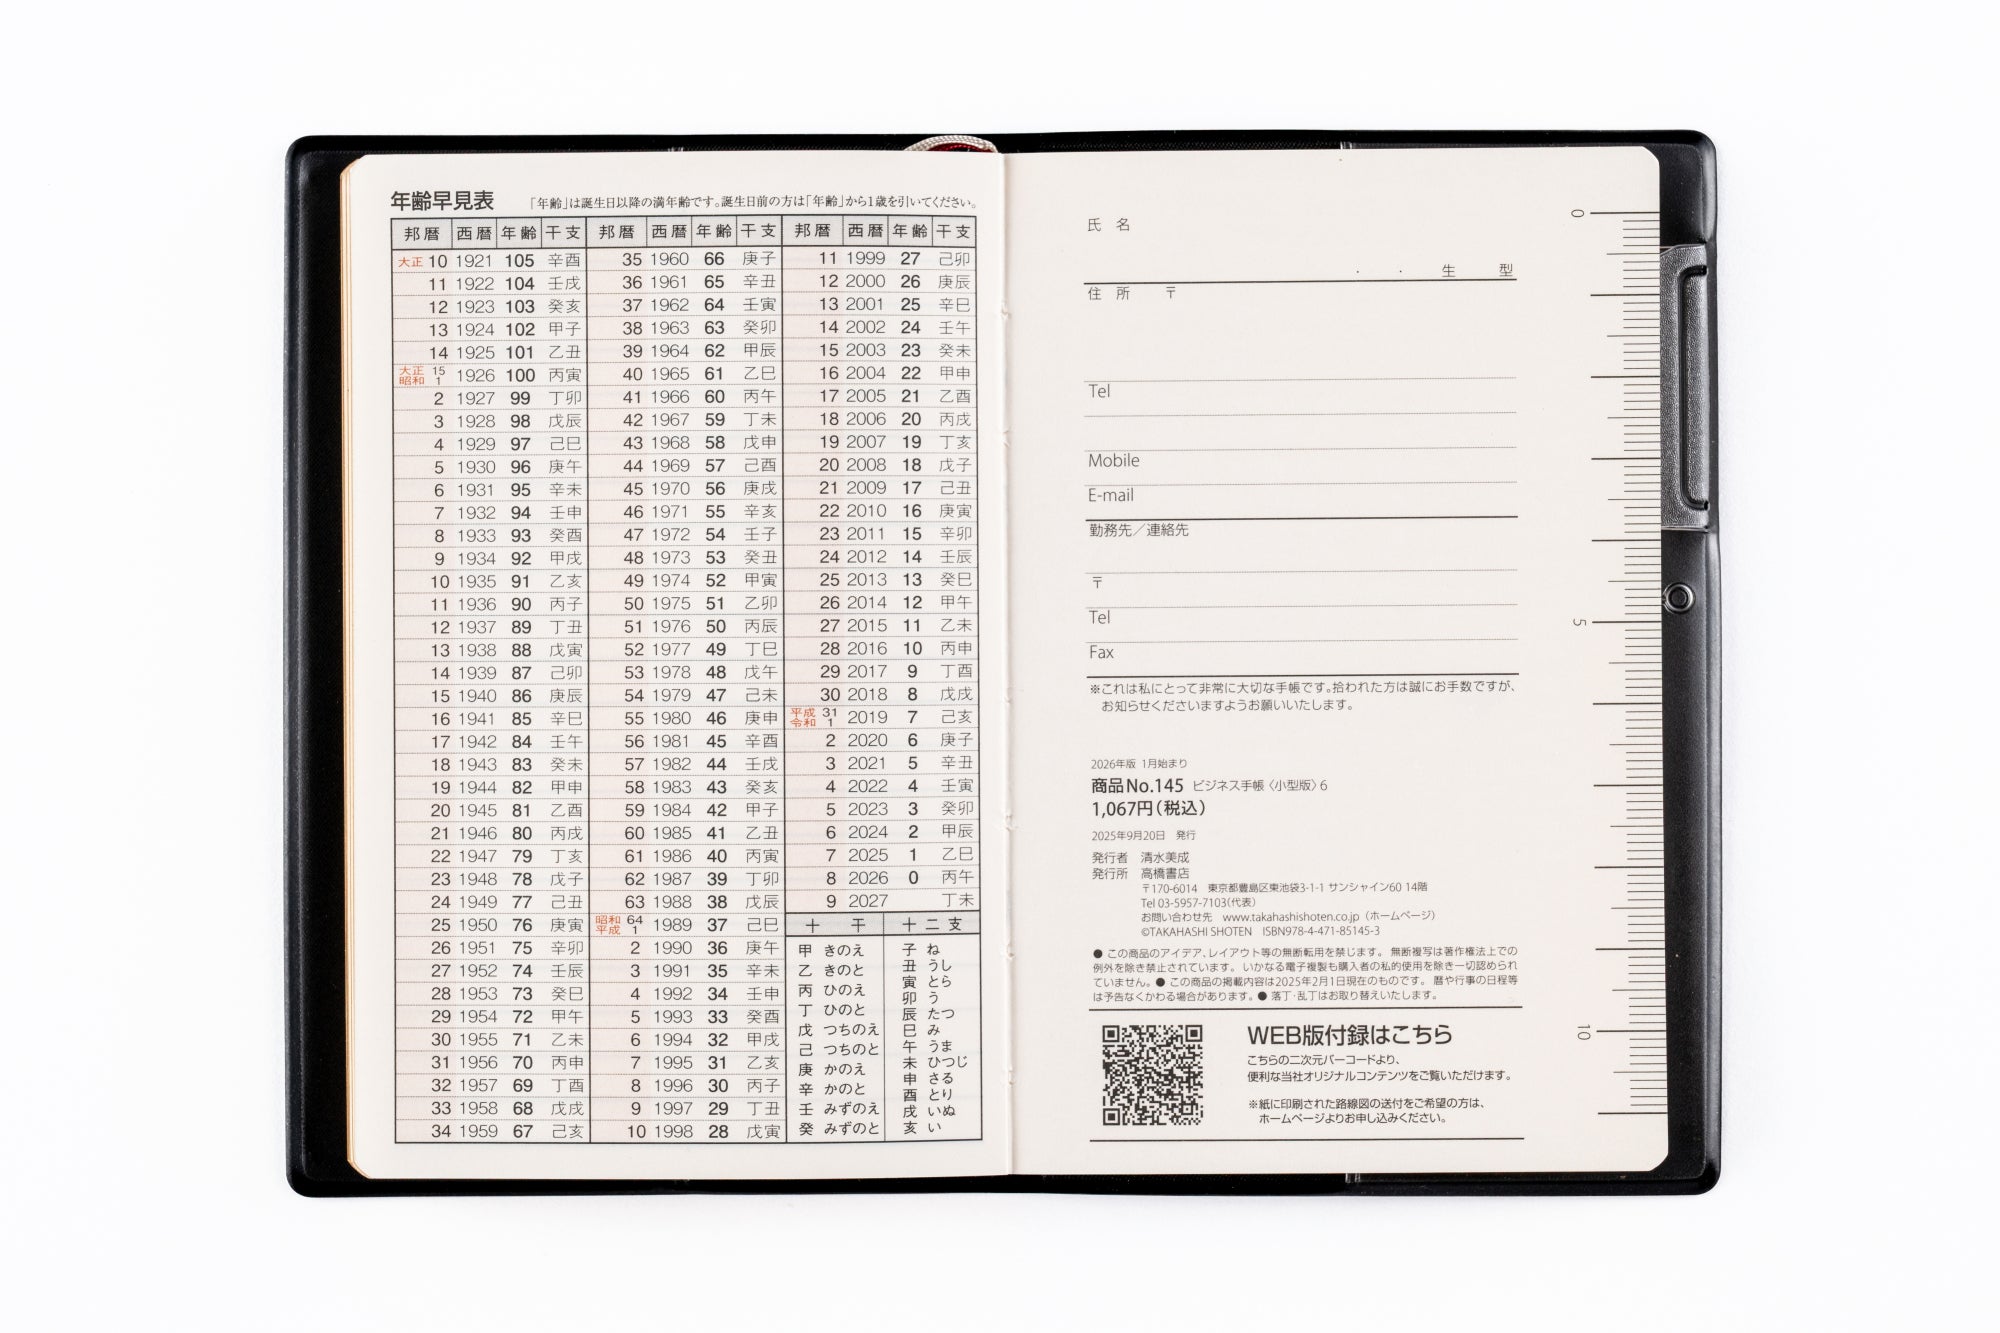 年齢早見表 「年齢」は誕生日以降の満年齢です。誕生日前の方は「年齢」から1歳を引いてください。
邦暦 西暦 年齢 干支 邦暦 西暦 年齢 干支 邦暦 西暦 年齢 干支
大正 10 1921 105 辛酉 35 1960 66 庚子 11 1999 27 己卯
11 1922 104 壬戌 36 1961 65 辛丑 12 2000 26 庚辰
12 1923 103 癸亥 37 1962 64 壬寅 13 2001 25 辛巳
13 1924 102 甲子 38 1963 63 癸卯 14 2002 24 壬午
14 1925 101 乙丑 39 1964 62 甲辰 15 2003 23 癸未
大正 15 昭和 1 1926 100 丙寅 40 1965 61 乙巳 16 2004 22 甲申
2 1927 99 丁卯 41 1966 60 丙午 17 2005 21 乙酉
3 1928 98 戊辰 42 1967 59 丁未 18 2006 20 丙戌
4 1929 97 己巳 43 1968 58 戊申 19 2007 19 丁亥
5 1930 96 庚午 44 1969 57 己酉 20 2008 18 戊子
6 1931 95 辛未 45 1970 56 庚戌 21 2009 17 己丑
7 1932 94 壬申 46 1971 55 辛亥 22 2010 16 庚寅
8 1933 93 癸酉 47 1972 54 壬子 23 2011 15 辛卯
9 1934 92 甲戌 48 1973 53 癸丑 24 2012 14 壬辰
10 1935 91 乙亥 49 1974 52 甲寅 25 2013 13 癸巳
11 1936 90 丙子 50 1975 51 乙卯 26 2014 12 甲午
12 1937 89 丁丑 51 1976 50 丙辰 27 2015 11 乙未
13 1938 88 戊寅 52 1977 49 丁巳 28 2016 10 丙申
14 1939 87 己卯 53 1978 48 戊午 29 2017 9 丁酉
15 1940 86 庚辰 54 1979 47 己未 30 2018 8 戊戌
16 1941 85 辛巳 55 1980 46 庚申 平成 31 令和 1 2019 7 己亥
17 1942 84 壬午 56 1981 45 辛酉 2 2020 6 庚子
18 1943 83 癸未 57 1982 44 壬戌 3 2021 5 辛丑
19 1944 82 甲申 58 1983 43 癸亥 4 2022 4 壬寅
20 1945 81 乙酉 59 1984 42 甲子 5 2023 3 癸卯
21 1946 80 丙戌 60 1985 41 乙丑 6 2024 2 甲辰
22 1947 79 丁亥 61 1986 40 丙寅 7 2025 1 乙巳
23 1948 78 戊子 62 1987 39 丁卯 8 2026 0 丙午
24 1949 77 己丑 63 1988 38 戊辰 9 2027 丁未
25 1950 76 庚寅 昭和 64 平成 1 1989 37 己巳
26 1951 75 辛卯 2 1990 36 庚午
27 1952 74 壬辰 3 1991 35 辛未
28 1953 73 癸巳 4 1992 34 壬申
29 1954 72 甲午 5 1993 33 癸酉
30 1955 71 乙未 6 1994 32 甲戌
31 1956 70 丙申 7 1995 31 乙亥
32 1957 69 丁酉 8 1996 30 丙子
33 1958 68 戊戌 9 1997 29 丁丑
34 1959 67 己亥 10 1998 28 戊寅
十干
甲 きのえ
乙 きのと
丙 ひのえ
丁 ひのと
戊 つちのえ
己 つちのと
庚 かのえ
辛 かのと
壬 みずのえ
癸 みずのと
十二支
子 ね
丑 うし
寅 とら
卯 う
辰 たつ
巳 み
午 うま
未 ひつじ
申 さる
酉 とり
戌 いぬ
亥 い
氏 名
・ ・ 生 型
住 所 〒
Tel
Mobile
E-mail
勤務先／連絡先
〒
Tel
Fax
※これは私にとって非常に大切な手帳です。拾われた方は誠にお手数ですが、
お知らせくださいますようお願いいたします。
2026年版 1月始まり
商品No.145 ビジネス手帳〈小型版〉6
1,067円（税込）
2025年9月20日 発行
発行者 清水美成
発行所 高橋書店
〒170-6014 東京都豊島区東池袋3-1-1 サンシャイン60 14階
Tel 03-5957-7103(代表)
お問い合わせ先 www.takahashishoten.co.jp（ホームページ）
©TAKAHASHI SHOTEN ISBN978-4-471-85145-3
● この商品のアイデア、レイアウト等の無断転用を禁じます。 無断複写は著作権法上での
例外を除き禁止されています。 いかなる電子複製も購入者の私的使用を除き一切認められ
ていません。● この商品の掲載内容は2025年2月1日現在のものです。 暦や行事の日程等
は予告なくかわる場合があります。● 落丁・乱丁はお取り替えいたします。
WEB版付録はこちら
こちらの二次元バーコードより、
便利な当社オリジナルコンテンツをご覧いただけます。
※紙に印刷された路線図の送付をご希望の方は、
ホームページよりお申し込みください。
0
5
10